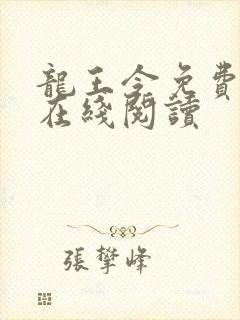 龍王令免費
在綫閱讀
張攀峰